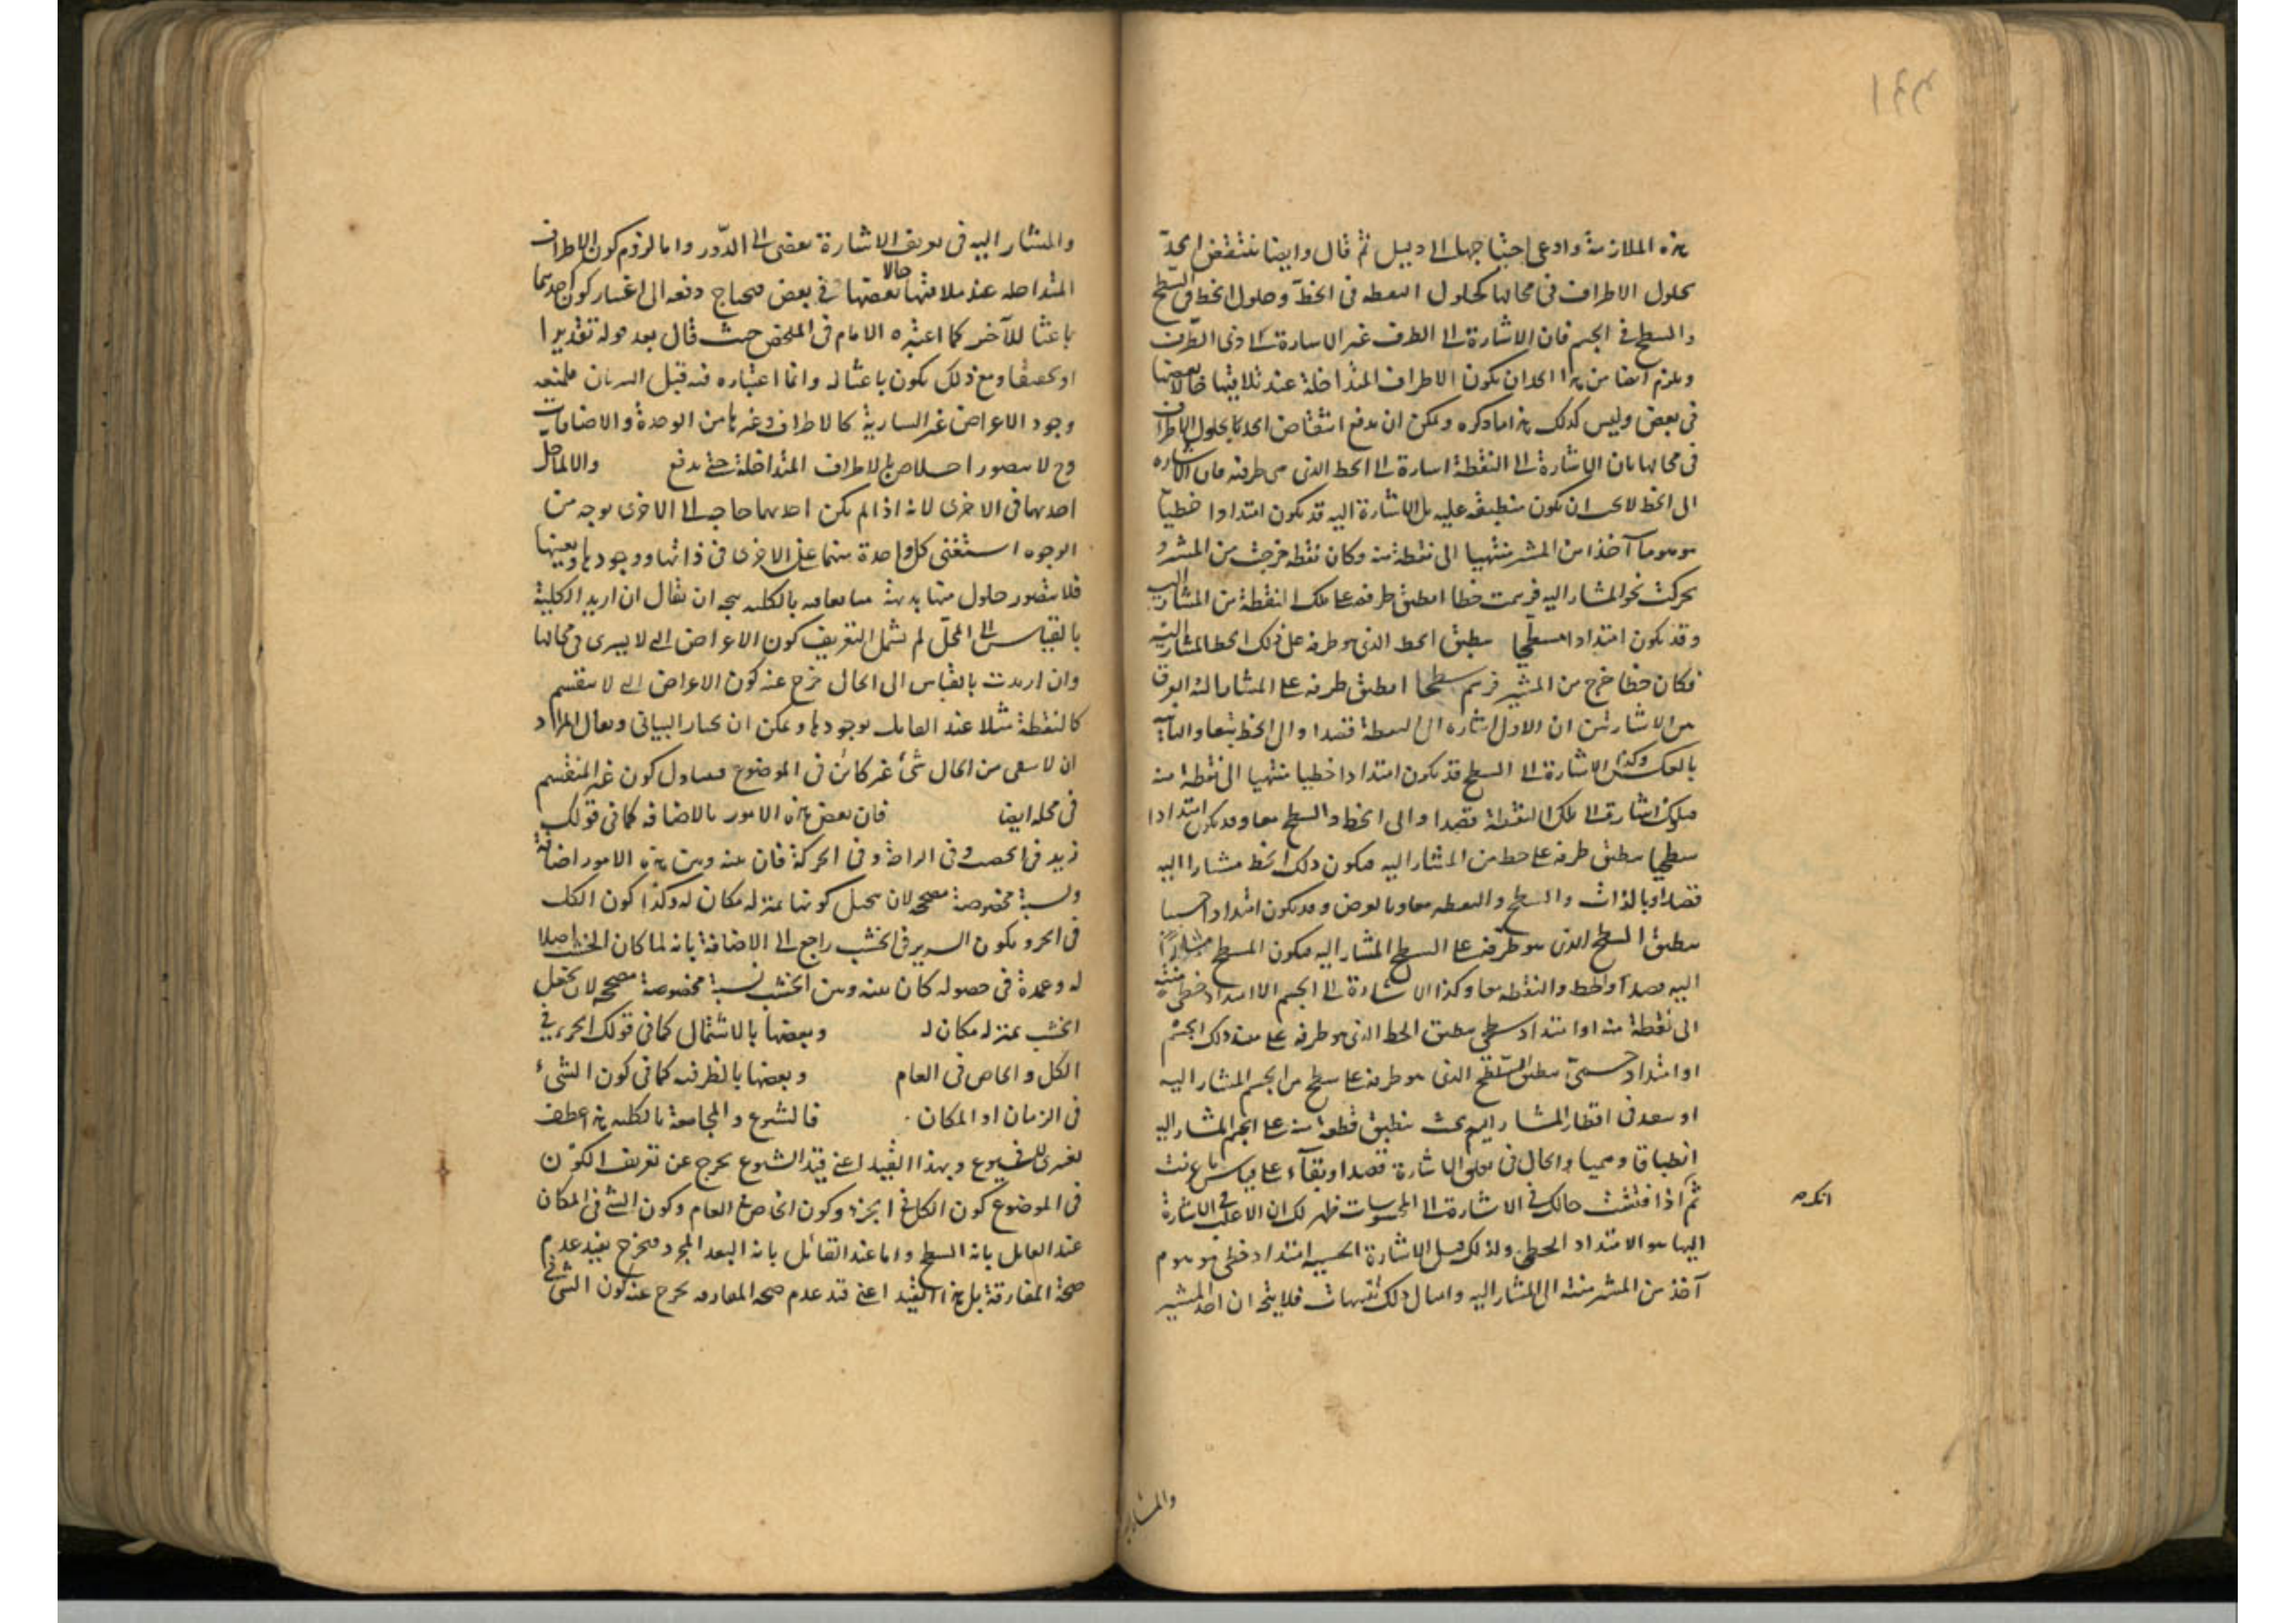 هذه الملازمة وادعى احتياجها الى دليل ثم قال وايضا ينتقض الحد
بحلول الاطراف في محالها كحلول النقطة في الخط وحلول الخط في السطح
والسطح في الجسم فان الاشارة الى الطرف غير الاشارة الى ذى الطرف
ويلزم ايضا من هذا الحد ان يكون الاطراف المتداخلة عند تلاقيها حالا بعضها
في بعض وليس كذلك هذا ما ذكره ويمكن ان يدفع انتقاض الحد بحلول الاطراف
في محالها بان الاشارة الى النقطة اشارة الى الخط الذى هي طرفه فان الاشارة
الى الخط لا يجب ان يكون منطبقة عليه بل الاشارة اليه قد يكون امتدادا خطيا
موهوما آخذا من المشير منتهيا الى نقطة منه وكان نقطة خرجت من المشير و
تحركت نحو المشار اليه فرسمت خطا انطبق طرفه على تلك النقطة من المشار اليه
وقد يكون امتدادا سطحيا ينطبق الخط الذى هو طرفه على ذلك الخط المشار اليه
فكان خطا خرج من المشير فرسم سطحا انطبق طرفه على المشار اليه والفرق
بين الاشارتين ان الاول اشارة الى النقطة قصدا والى الخط تبعا والثانية
بالعكس وكذا الاشارة الى السطح قد يكون امتدادا خطيا منتهيا الى نقطة منه
فيكون اشارة الى تلك النقطة قصدا والى الخط والسطح تبعا وقد يكون امتدادا
سطحيا ينطبق طرفه على خط من المشار اليه فيكون ذلك الخط مشارا اليه
قصدا وبالذات والسطح والنقطة تبعا وبالعرض وقد يكون امتدادا جسميا
ينطبق السطح الذى هو طرفه على السطح المشار اليه فيكون السطح مشارا
اليه قصدا والخط والنقطة تبعا وكذا الاشارة الى الجسم اما امتداد خطى منته
الى نقطة منه او امتداد سطحى ينطبق الخط الذى هو طرفه على خط من ذلك الجسم
او امتداد جسمى ينطبق السطح الذى هو طرفه على سطح من الجسم المشار اليه
او ينفذ فى اقطار المشار اليه بحيث ينطبق قطعة منه على الجسم المشار اليه
انطباقا وهميا والحال في تعلق الاشارة قصدا وتبعا على قياس ما عرفت
ثم اذا فتشت حالك في الاشارة الى المحسوسات ظهر لك ان الاغلب في الاشارة
اليها هو الامتداد الخطى ولذلك قيل الاشارة الحسية امتداد خطى موهوم
آخذ من المشير منته الى المشار اليه وامثال ذلك تنبيهات فلا يتجه ان اخذ المشير
والمشار اليه
والمشار اليه فى تعريف الاشارة يفضى الى الدور واما لزوم كون الاطراف
المتداخلة عند ملاقاتها حالا بعضها في بعض فيحتاج دفعه الى اعتبار كون احدهما
باعثا للآخر كما اعتبره الامام فى الملخص حيث قال بعد قوله تقديرا
او تحقيقا ومع ذلك يكون باعثا له وانما اعتباره فيه قبل السريان فيمنعه
وجود الاعراض غير السارية كالاطراف وغيرها من الوحدة والاضافات
وح لا يتصور الاطراف المتداخلة حتى يدفع والا لما حل
احديهما فى الاخرى لانه اذا لم يكن احديهما حاجة الى الاخرى بوجه من
الوجوه استغنى كل واحدة منهما عن الاخرى فى ذاتها ووجودها وتعينها
فلا يتصور حلول بينهما بديهة بالكلية يتجه ان يقال ان اريد الكلية
بالقياس الى المحل لم يشمل التعريف كون الاعراض التي لا يسرى فى محالها
وان اريدت بالقياس الى الحال خرج عنه كون الاعراض التي لا ينقسم
كالنقطة مثلا عند القائل بوجودها ويمكن ان يختار الثانى ويقال المراد
ان لا يبقى من الحال شئ غير كائن فى الموضوع فيتناول كون غير المنقسم
فى محله ايضا فان بعض هذه الامور بالاضافة كما فى قولك
زيد فى الخصب وفى الراحة وفى الحركة فان بينه وبين هذه الامور اضافة
ونسبة مخصوصة مصححة لان يتخيل كونها بمنزلة مكان له وكذا كون الكل
فى الجزء وكون السرير فى الخشب راجع الى الاضافة بانه لما كان الخشب اصلا
له وعمدة فى حصوله كان بينه وبين الخشب نسبة مخصوصة مصححة لان يجعل
الخشب بمنزلة مكان له وبعضها بالاشتمال كما فى قولك الجزء في
الكل والخاص فى العام وبعضها بالظرفية كما فى كون الشىء
فى الزمان او المكان . فالشيوع والمجامعة بالكلية هذا عطف
تفسيرى للشيوع وبهذا القيد اعني قيد الشيوع يخرج عن تعريف الكون
فى الموضوع كون الكل في الجزء وكون الخاص في العام وكون الشئ في المكان
عند القائل بانه السطح واما عند القائل بانه البعد المجرد فيخرج بقيد عدم
صحة المفارقة بل هذا القيد اعنى قيد عدم صحة المفارقة يخرج عنه كون الشئ في